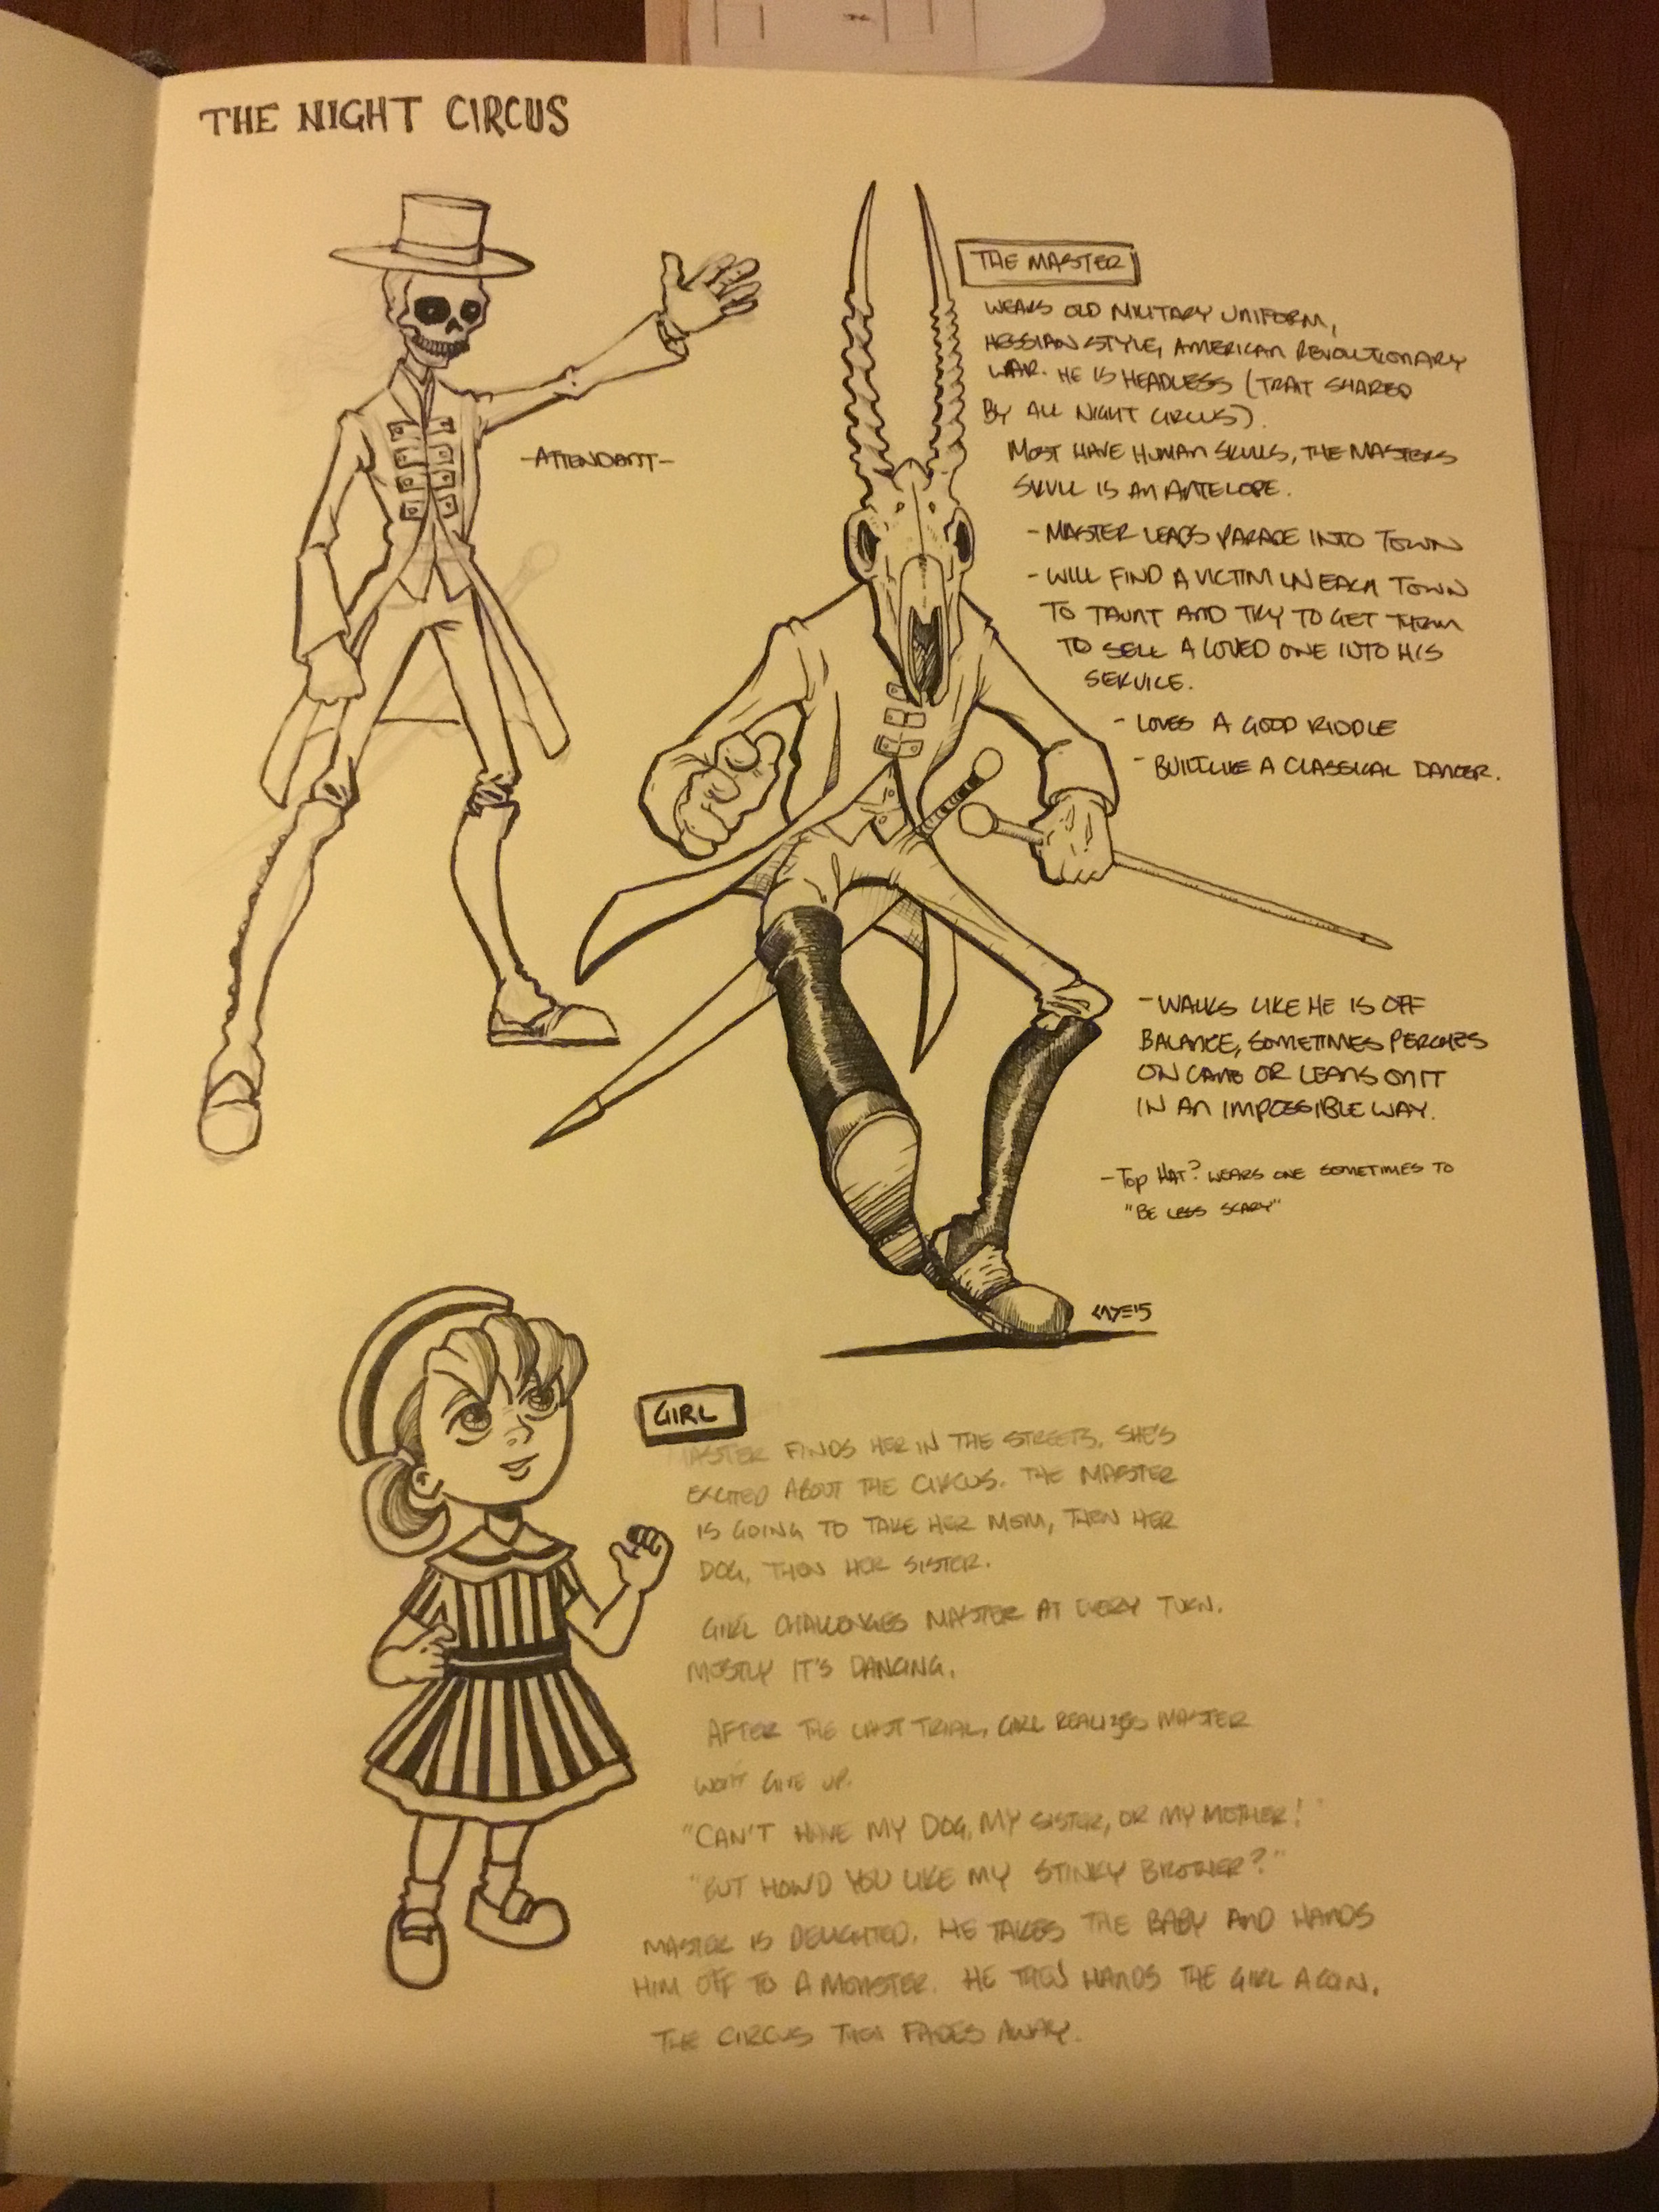 THE NIGHT CIRCUS
-ATTENDANT-
THE MASTER
WEARS OLD MILITARY UNIFORM,
HESSIAN STYLE, AMERICAN REVOLUTIONARY
WAR. HE IS HEADLESS (TRAIT SHARED
BY ALL NIGHT CIRCUS).
MOST HAVE HUMAN SKULLS, THE MASTERS
SKULL IS AN ANTELOPE.
- MASTER LEADS PARADE INTO TOWN
- WILL FIND A VICTIM IN EACH TOWN
TO TAUNT AND TRY TO GET THEM
TO SELL A LOVED ONE INTO HIS
SERVICE.
- LOVES A GOOD RIDDLE
- BUILT LIKE A CLASSICAL DANCER.
- WALKS LIKE HE IS OFF
BALANCE, SOMETIMES PERCHES
ON CANE OR LEANS ON IT
IN AN IMPOSSIBLE WAY.
- TOP HAT? WEARS ONE SOMETIMES TO
"BE LESS SCARY"
GIRL
MASTER FINDS HER IN THE STREETS. SHE'S
EXCITED ABOUT THE CIRCUS. THE MASTER
IS GOING TO TAKE HER MOM, THEN HER
DOG, THEN HER SISTER.
GIRL CHALLENGES MASTER AT EVERY TURN.
MOSTLY IT'S DANCING.
AFTER THE LAST TRIAL, GIRL REALIZES MASTER
WON'T GIVE UP.
"CAN'T HAVE MY DOG, MY SISTER, OR MY MOTHER!
"BUT HOW'D YOU LIKE MY STINKY BROTHER?"
MASTER IS DELIGHTED. HE TAKES THE BABY AND HANDS
HIM OFF TO A MONSTER. HE THEN HANDS THE GIRL A COIN.
THE CIRCUS THEN FADES AWAY.